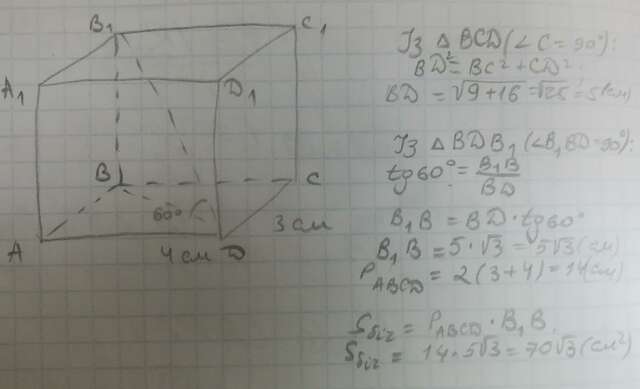 B₁
C₁
A₁
D₁
B
C
60°
3 см
A
4 см
D
Із △ BCD (∠C = 90°):
BD² = BC² + CD²;
BD = √9+16 = √25 = 5 (см)
Із △ BDB₁ (∠B₁BD = 90°):
tg60° = B₁B / BD
B₁B = BD · tg60°
B₁B = 5 · √3 = 5√3 (см)
P_ABCD = 2(3+4) = 14 (см)
S біг = P_ABCD · B₁B.
S біг = 14 · 5√3 = 70√3 (см²)